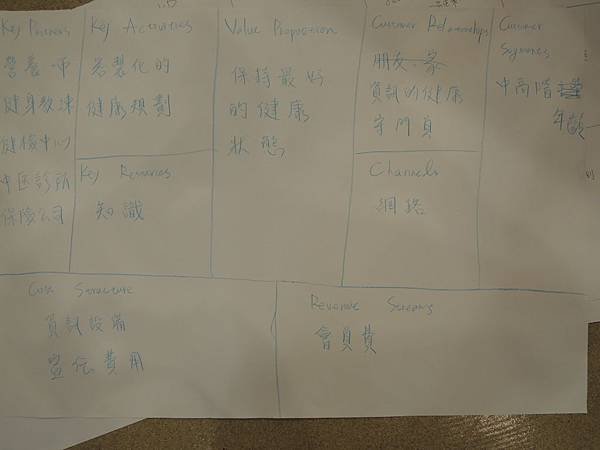 Key Partners
營養師
健身教練
健檢中心
中医診所
保險公司
Key Activities
客製化的
健康規劃
Key Resources
知識
Value Proposition
保持最好
的健康
狀態
Customer Relationships
資訊的健康
守門員
Channels
網路
Customer
Segments
中高階
年齡
Cost Structure
資訊設備
宣伝費用
Revenue Streams
會員費